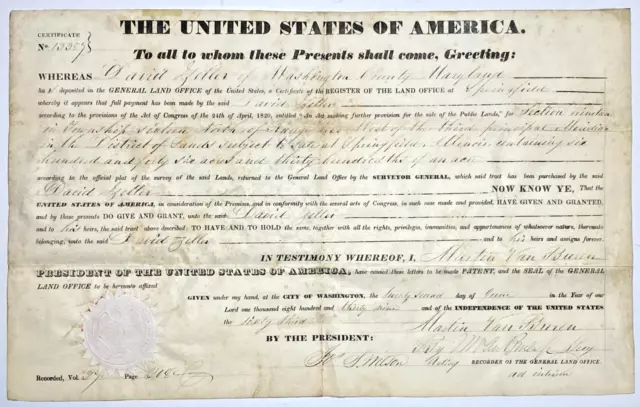 THE UNITED STATES OF AMERICA.
CERTIFICATE
No 13357
To all to whom these Presents shall come, Greeting:
WHEREAS David Zeller of Washington County Maryland
ha s deposited in the GENERAL LAND OFFICE of the United States, a Certificate of the REGISTER OF THE LAND OFFICE at Springfield
whereby it appears that full payment has been made by the said David Zeller
according to the provisions of the Act of Congress of the 24th of April, 1820, entitled "An Act making further provision for the sale of the Public Lands," for Section nineteen
in Township Sixteen North of Range West of the third principal Meridian
in the District of Lands subject to Sale at Springfield Illinois containing six
hundred and forty six acres and thirty hundredths of an acre
according to the official plat of the survey of the said Lands, returned to the General Land Office by the SURVEYOR GENERAL, which said tract has been purchased by the said
David Zeller NOW KNOW YE, That the
UNITED STATES OF AMERICA, in consideration of the Premises, and in conformity with the several acts of Congress, in such case made and provided, HAVE GIVEN AND GRANTED,
and by these presents DO GIVE AND GRANT, unto the said David Zeller
and to his heirs, the said tract above described: TO HAVE AND TO HOLD the same, together with all the rights, privileges, immunities, and appurtenances of whatsoever nature, thereunto
belonging, unto the said David Zeller and to his heirs and assigns forever.
IN TESTIMONY WHEREOF, I, Martin Van Buren
PRESIDENT OF THE UNITED STATES OF AMERICA, have caused these letters to be made PATENT, and the SEAL of the GENERAL
LAND OFFICE to be hereunto affixed
GIVEN under my hand, at the CITY OF WASHINGTON, the twenty second day of June in the Year of our
Lord one thousand eight hundred and thirty nine and of the INDEPENDENCE OF THE UNITED STATES
the sixty third
Martin Van Buren
BY THE PRESIDENT:
By M. Van Buren Jr Secy
Jos. S. Wilson Acting RECORDER OF THE GENERAL LAND OFFICE.
ad interim
Recorded, Vol. Page